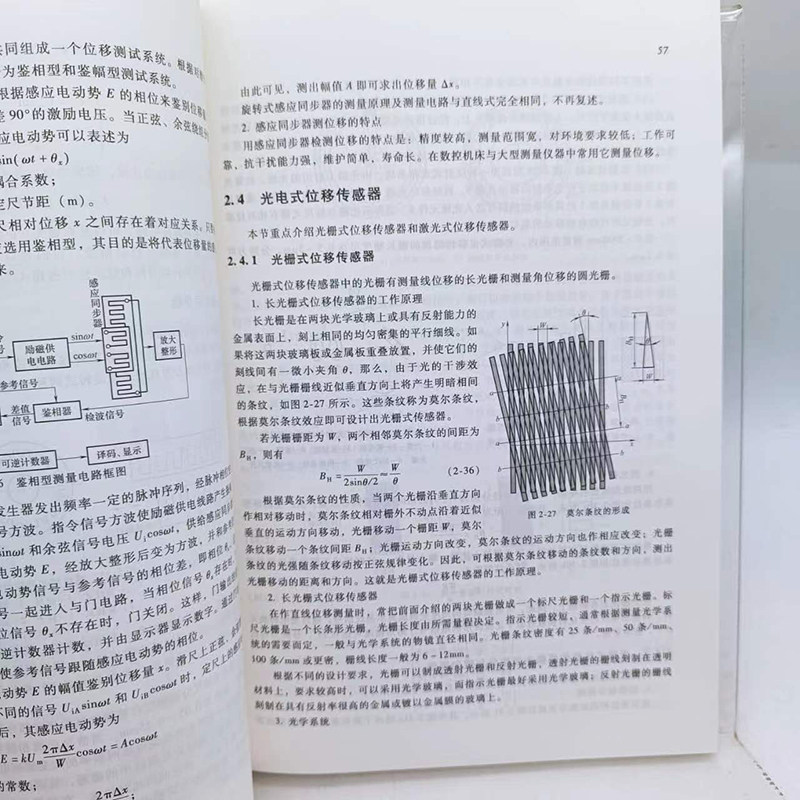 共同组成一个位移测试系统。根据对
为鉴相型和鉴幅型测试系统。
根据感应电动势 E 的相位来鉴别位移
差 90°的激励电压。当正弦、余弦绕组
应电动势可以表述为
sin(ωt + θx)
耦合系数；
定尺节距（m）。
尺相对位移 x 之间存在着对应关系。
选用鉴相型，其目的是将代表位移量
来。
感应同步器
励磁供电电路
sinωt
cosωt
放大整形
参考信号
差值信号
鉴相器
检波信号
可逆计数器
译码、显示
6 鉴相型测量电路框图
发生器发出频率一定的脉冲序列，经脉冲相
号方波。指令信号方波使励磁供电线路产生
sinωt 和余弦信号电压 U1cosωt，供给感应同
电动势 E，经放大整形后变为方波，并和参考
动势信号与参考信号的相位差，即相位
号一起进入与门电路，当相位信号 θx存在时，
位信号 θx不存在时，门关闭。这样，门输出
逆计数器计数，并由显示器显示数字。
使参考信号跟随感应电动势的相位。
动势 E 的幅值鉴别位移量 x。滑尺上正弦、
不同的信号 UiAsinωt 和 UiBcosωt 时，定尺上的
后，其感应电动势为
E = kUm 2πΔx/W cosωt = Acosωt
的常数；
57
由此可见，测出幅值 A 即可求出位移量 Δx。
旋转式感应同步器的测量原理及测量电路与直线式完全相同，不再复述。
2. 感应同步器测位移的特点
用感应同步器检测位移的特点是：精度较高，测量范围宽，对环境要求较低；工作可
靠，抗干扰能力强，维护简单，寿命长。在数控机床与大型测量仪器中常用它测量位移。
2.4 光电式位移传感器
本节重点介绍光栅式位移传感器和激光式位移传感器。
2.4.1 光栅式位移传感器
光栅式位移传感器中的光栅有测量线位移的长光栅和测量角位移的圆光栅。
1. 长光栅式位移传感器的工作原理
长光栅是在两块光学玻璃上或具有反射能力的
金属表面上，刻上相同的均匀密集的平行细线。如
果将这两块玻璃板或金属板重叠放置，并使它们的
刻线间有一微小夹角 θ，那么，由于光的干涉效
应，在与光栅栅线近似垂直方向上将产生明暗相间
的条纹，如图 2-27 所示。这些条纹称为莫尔条纹，
根据莫尔条纹效应即可设计出光栅式传感器。
若光栅栅距为 W，两个相邻莫尔条纹的间距为
BH，则有
BH = W/2sinθ/2 ≈ W/θ (2-36)
根据莫尔条纹的性质，当两个光栅沿垂直方向
作相对移动时，莫尔条纹相对栅外不动点沿着近似
垂直的运动方向移动，光栅移动一个栅距 W，莫尔
y
W
θ
BH
a
b
x
图 2-27 莫尔条纹的形成
条纹移动一个条纹间距 BH；光栅运动方向改变，莫尔条纹的运动方向也作相应改变；光栅
条纹的光强随条纹移动按正弦规律变化。因此，可根据莫尔条纹移动的条纹数和方向，测出
光栅移动的距离和方向。这就是光栅式位移传感器的工作原理。
2. 长光栅式位移传感器
在作直线位移测量时，常把前面介绍的两块光栅做成一个标尺光栅和一个指示光栅。标
尺光栅是一个长条形光栅，光栅长度由所需量程决定。指示光栅较短，通常根据测量光学系
统的需要而定，一般与光学系统的物镜直径相同。光栅条纹密度有 25 条/mm、50 条/mm、
100 条/mm 或更密，栅线长度一般为 6~12mm。
根据不同的设计要求，光栅可以制成透射光栅和反射光栅。透射光栅的栅线刻制在透明
材料上，要求较高时，可以采用光学玻璃，而指示光栅最好采用光学玻璃；反射光栅的栅线
刻制在具有反射率很高的金属或镀以金属膜的玻璃上。
3. 光学系统